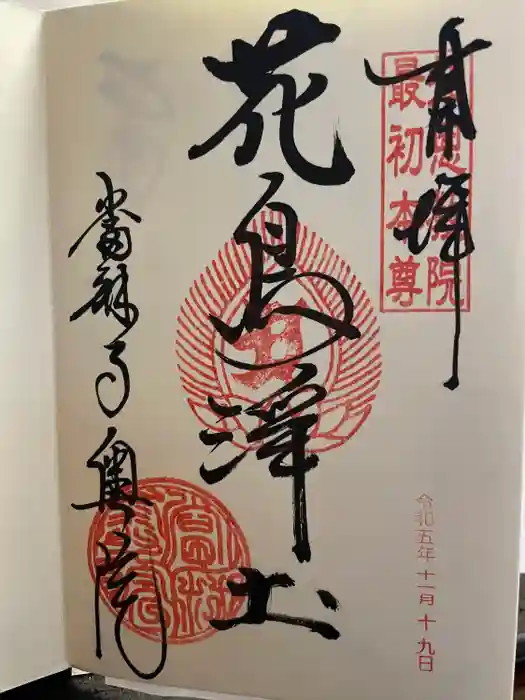 奉拝
最初本尊
花鳥淨土
當麻寺奥院
令和五年十一月十九日